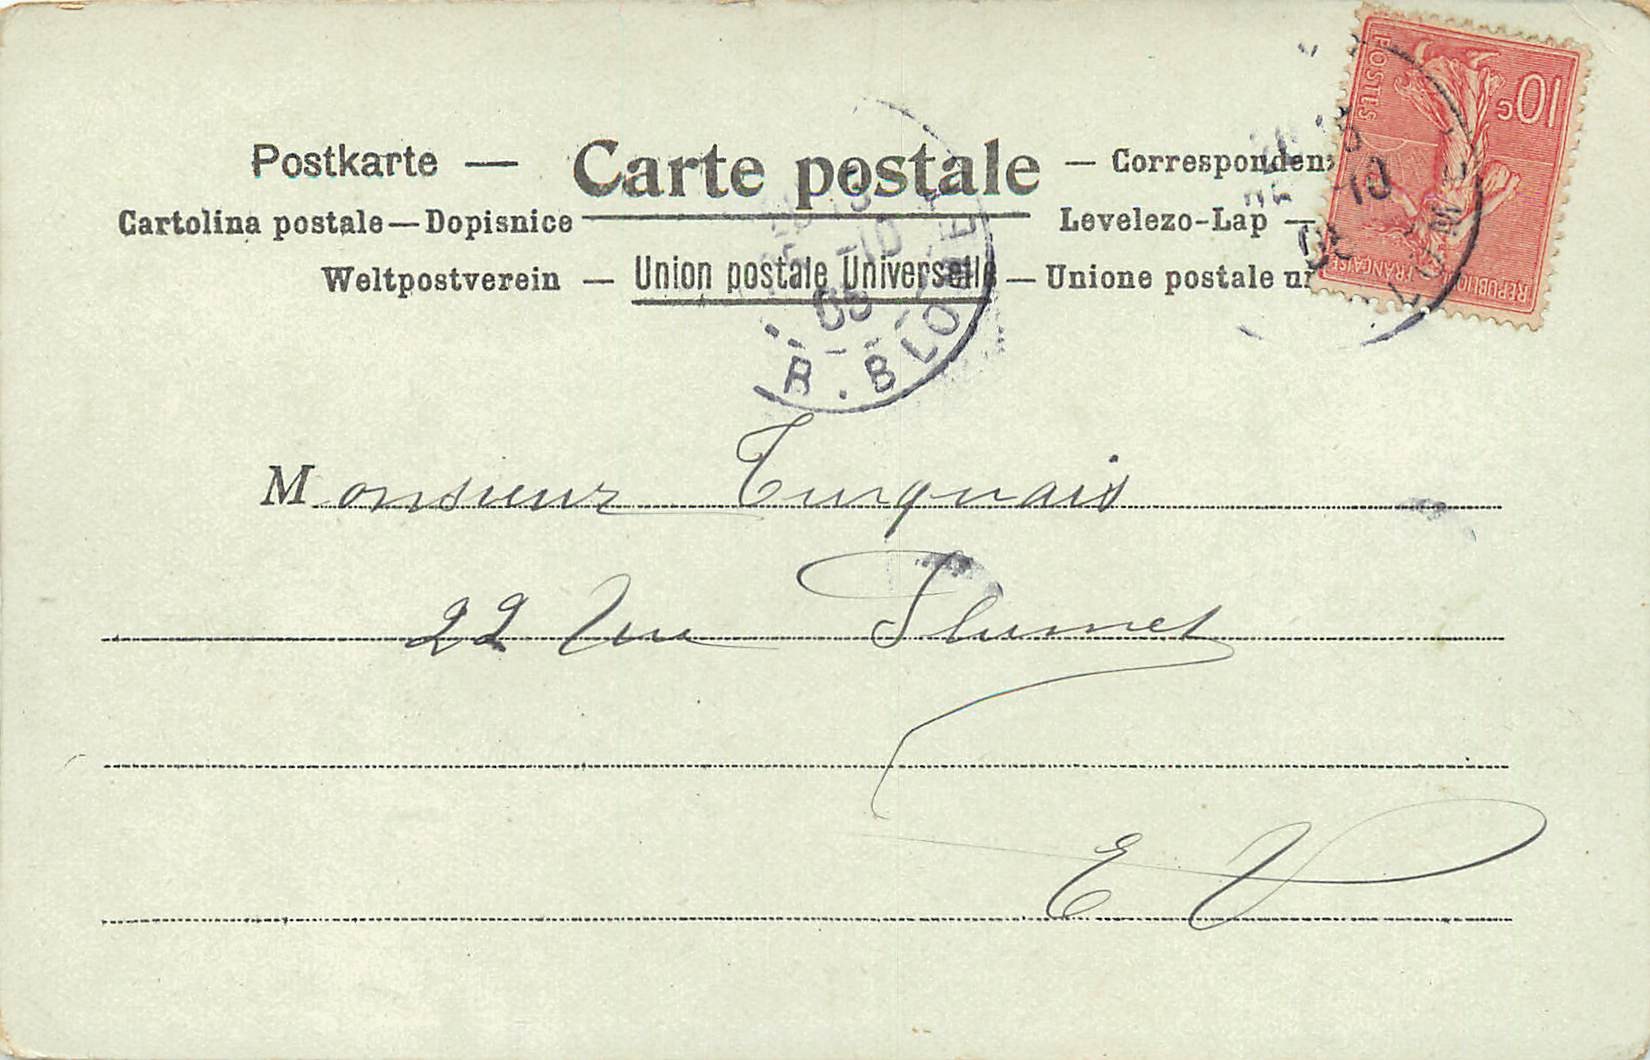 Postkarte — Carte postale — Corresponden
Cartolina postale — Dopisnice Levelezo-Lap —
Weltpostverein — Union postale Universelle — Unione postale un
10c
POSTES
REPUBLIQUE FRANÇAISE
-10
05
R. BLOMET
-10
05
Monsieur Turquais
22 rue Plumet
E V